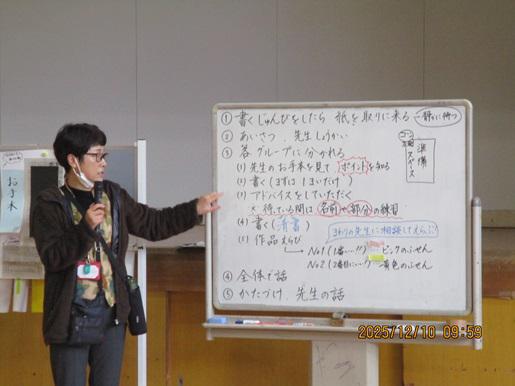 お手本
① 書くじゅんびをしたら 紙を取りに来る → 静かに待つ
② あいさつ、先生しょうかい
③ 各グループに分かれる
(1) 先生のお手本を見て ポイントを知る
(2) 書く(まずは1まいだけ)
(3) アドバイスをしていただく
※ 待っている間は 名前や部分の練習
(4) 書く(清書)
(5) 作品えらび
まわりの先生に相談してえらぶ
No1(1番…!!) ピンクのふせん
No2(2番目に…!) 黄色のふせん
④ 全体で話
⑤ かたづけ、先生の話
準備
スペース
2025/12/10 09:59